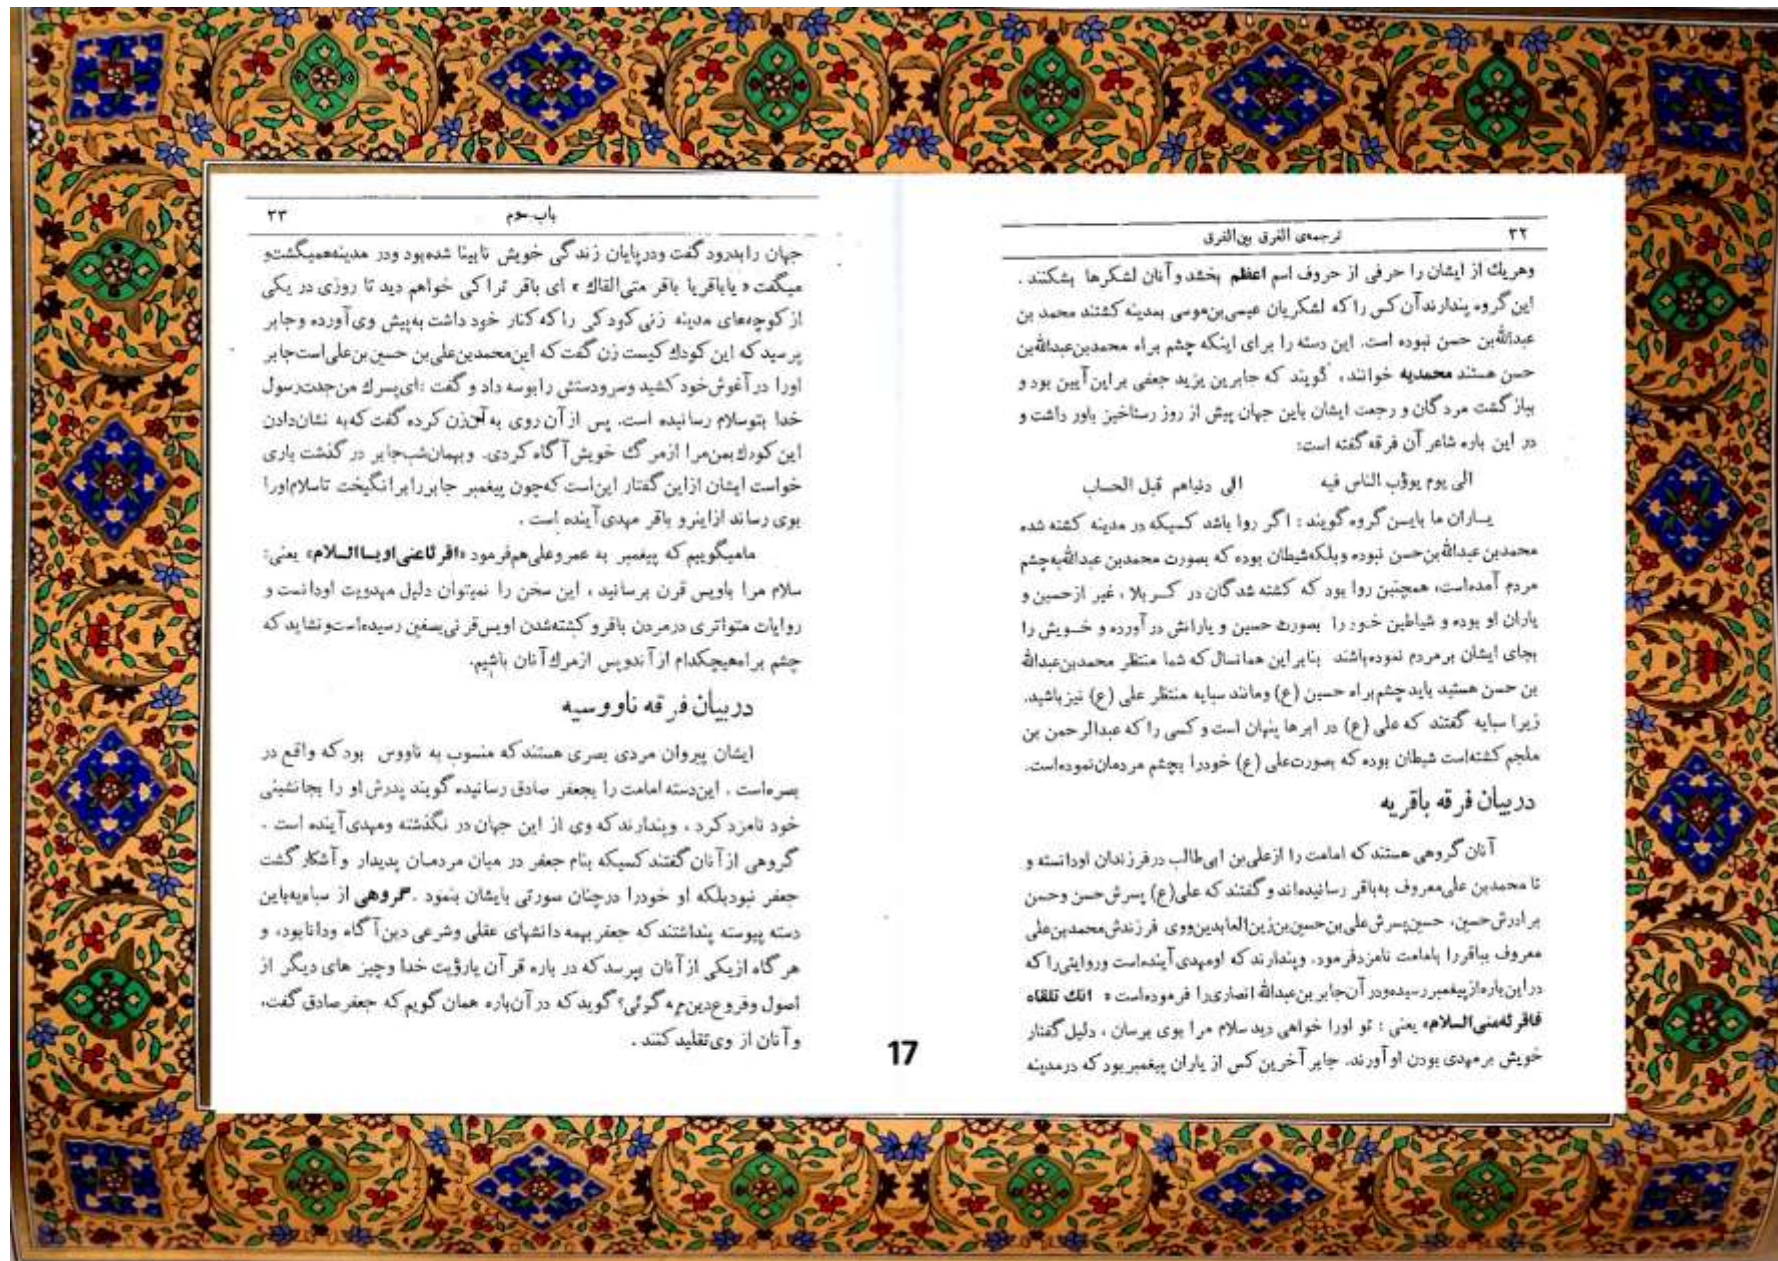 ۳۲ ترجمه‌ی الفرق بین‌الفرق
وهریك از ایشان را حرفی از حروف اسم اعظم بخشد و آنان لشکرها بشکنند .
این گروه پندارند آن کس را که لشکریان عیسی‌بن‌موسی بمدینه کشتند محمد بن
عبدالله‌بن حسن نبوده است. این دسته را برای اینکه چشم براه محمدبن‌عبدالله‌بن
حسن هستند محمدیه خوانند، گویند که جابربن یزید جعفی براین آیین بود و
بباز گشت مردگان و رجعت ایشان باین جهان پیش از روز رستاخیز باور داشت و
در این باره شاعر آن فرقه گفته است:
الی یوم یؤوب الناس فیه الی دنیاهم قبل الحساب
یاران ما بایـن گروه گویند : اگر روا باشد کسیکه در مدینه کشته شده
محمدبن عبدالله‌بن‌حسن نبوده وبلکه‌شیطان بوده که بصورت محمدبن عبدالله‌بچشم
مردم آمده‌است، همچنین روا بود که کشته شدگان در کـربلا ، غیر ازحسین و
یاران او بوده و شیاطین خـود را بصورت حسین و یارانش در آورده و خـویش را
بجای ایشان برمردم نموده‌باشند بنابراین همانسال که شما منتظر محمدبن‌عبدالله
بن حسن هستید باید چشم‌براه حسین (ع) ومانند سبایه منتظر علی (ع) نیز باشید.
زیرا سبایه گفتند که علی (ع) در ابرها پنهان است و کسی را که عبدالرحمن بن
ملجم کشته‌است شیطان بوده که بصورت‌علی (ع) خودرا بچشم مردمان‌نموده‌است.
در بیان فرقه باقریه
آنان گروهی هستند که امامت را ازعلی‌بن ابی‌طالب درفرزندان اودانسته و
تا محمدبن علی‌معروف به‌باقر رسانیده‌اند و گفتند که علی(ع) پسرش‌حسن وحسن
برادرش‌حسین، حسین‌پسرش‌علی‌بن‌حسین‌بن‌زین‌العابدین‌ووی فرزندش‌محمدبن‌علی
معروف بباقررا بامامت نامزدفرمود. وپندارند که اومهدی‌آینده‌است وروایتی‌را که
دراین‌باره‌ازپیغمبررسیده‌ودر آن‌جابربن‌عبدالله انصاری‌را فرموده‌است « انك تلقاه
فاقرئه‌منی‌السلام» یعنی : تو اورا خواهی دید سلام مرا بوی برسان ، دلیل گفتار
خویش برمهدی بودن او آورند. جابر آخرین کس از یاران پیغمبر بود که درمدینه
باب سوم ۳۳
جهان رابدرود گفت ودرپایان زندگی خویش نابینا شده‌بود ودر مدینه‌همیگشت‌و
میگفت « یاباقریا باقر متی‌القاك » ای باقر تراکی خواهم دید تا روزی در یکی
از کوچه‌های مدینه زنی کودکی راکه کنار خود داشت به‌پیش وی آورده وجابر
پرسید که این کودك کیست زن گفت که این‌محمدبن‌علی‌بن حسین‌بن‌علی‌است‌جابر
اورا در آغوش‌خود کشید وسرودستش رابوسه داد و گفت :ای‌پسرك من‌جدت‌رسول
خدا بتوسلام رسانیده است. پس از آن روی به آن‌زن کرده گفت که‌به نشان‌دادن
این کودك‌بمن‌مرا ازمرگ خویش آگاه کردی. وبهمان‌شب‌جابر در گذشت باری
خواست ایشان ازاین گفتار این‌است که‌چون پیغمبر جابررابرانگیخت تاسلام‌اورا
بوی رساند ازاینرو باقر مهدی آینده است .
مامیگوییم که پیغمبر به عمروعلی هم‌فرمود «اقرئاعنی‌اویساالسلام» یعنی:
سلام مرا باویس قرن برسانید ، این سخن را نمیتوان دلیل مهدویت اودانست و
روایات متواتری درمردن باقرو کشته‌شدن اویس‌قرنی‌بصفین رسیده‌است‌ونشاید که
چشم براه‌هیچکدام از آندوپس ازمرك آنان باشیم.
در بیان فرقه ناووسیه
ایشان پیروان مردی بصری هستند که منسوب به ناووس بود که واقع در
بصره‌است . این‌دسته امامت را بجعفر صادق رسانیده گویند پدرش او را بجانشینی
خود نامزد کرد ، وپندارند که وی از این جهان در نگذشته ومهدی آینده است .
گروهی از آنان گفتند کسیکه بنام جعفر در میان مردمـان پدیدار و آشکار گشت
جعفر نبودبلکه او خودرا درچنان سورتی بایشان بنمود .گروهی از سبا‌ییه‌باین
دسته پیوسته پنداشتند که جعفر بهمه دانشهای عقلی وشرعی دین آگاه ودانابود، و
هرگاه ازیکی از آنان بپرسد که در باره قرآن یارؤیت خدا وچیز های دیگر از
اصول وفروع‌دین‌چه گوئی؟ گوید که در آن‌باره همان گویم که جعفرصادق گفت،
و آنان از وی تقلید کنند .
17